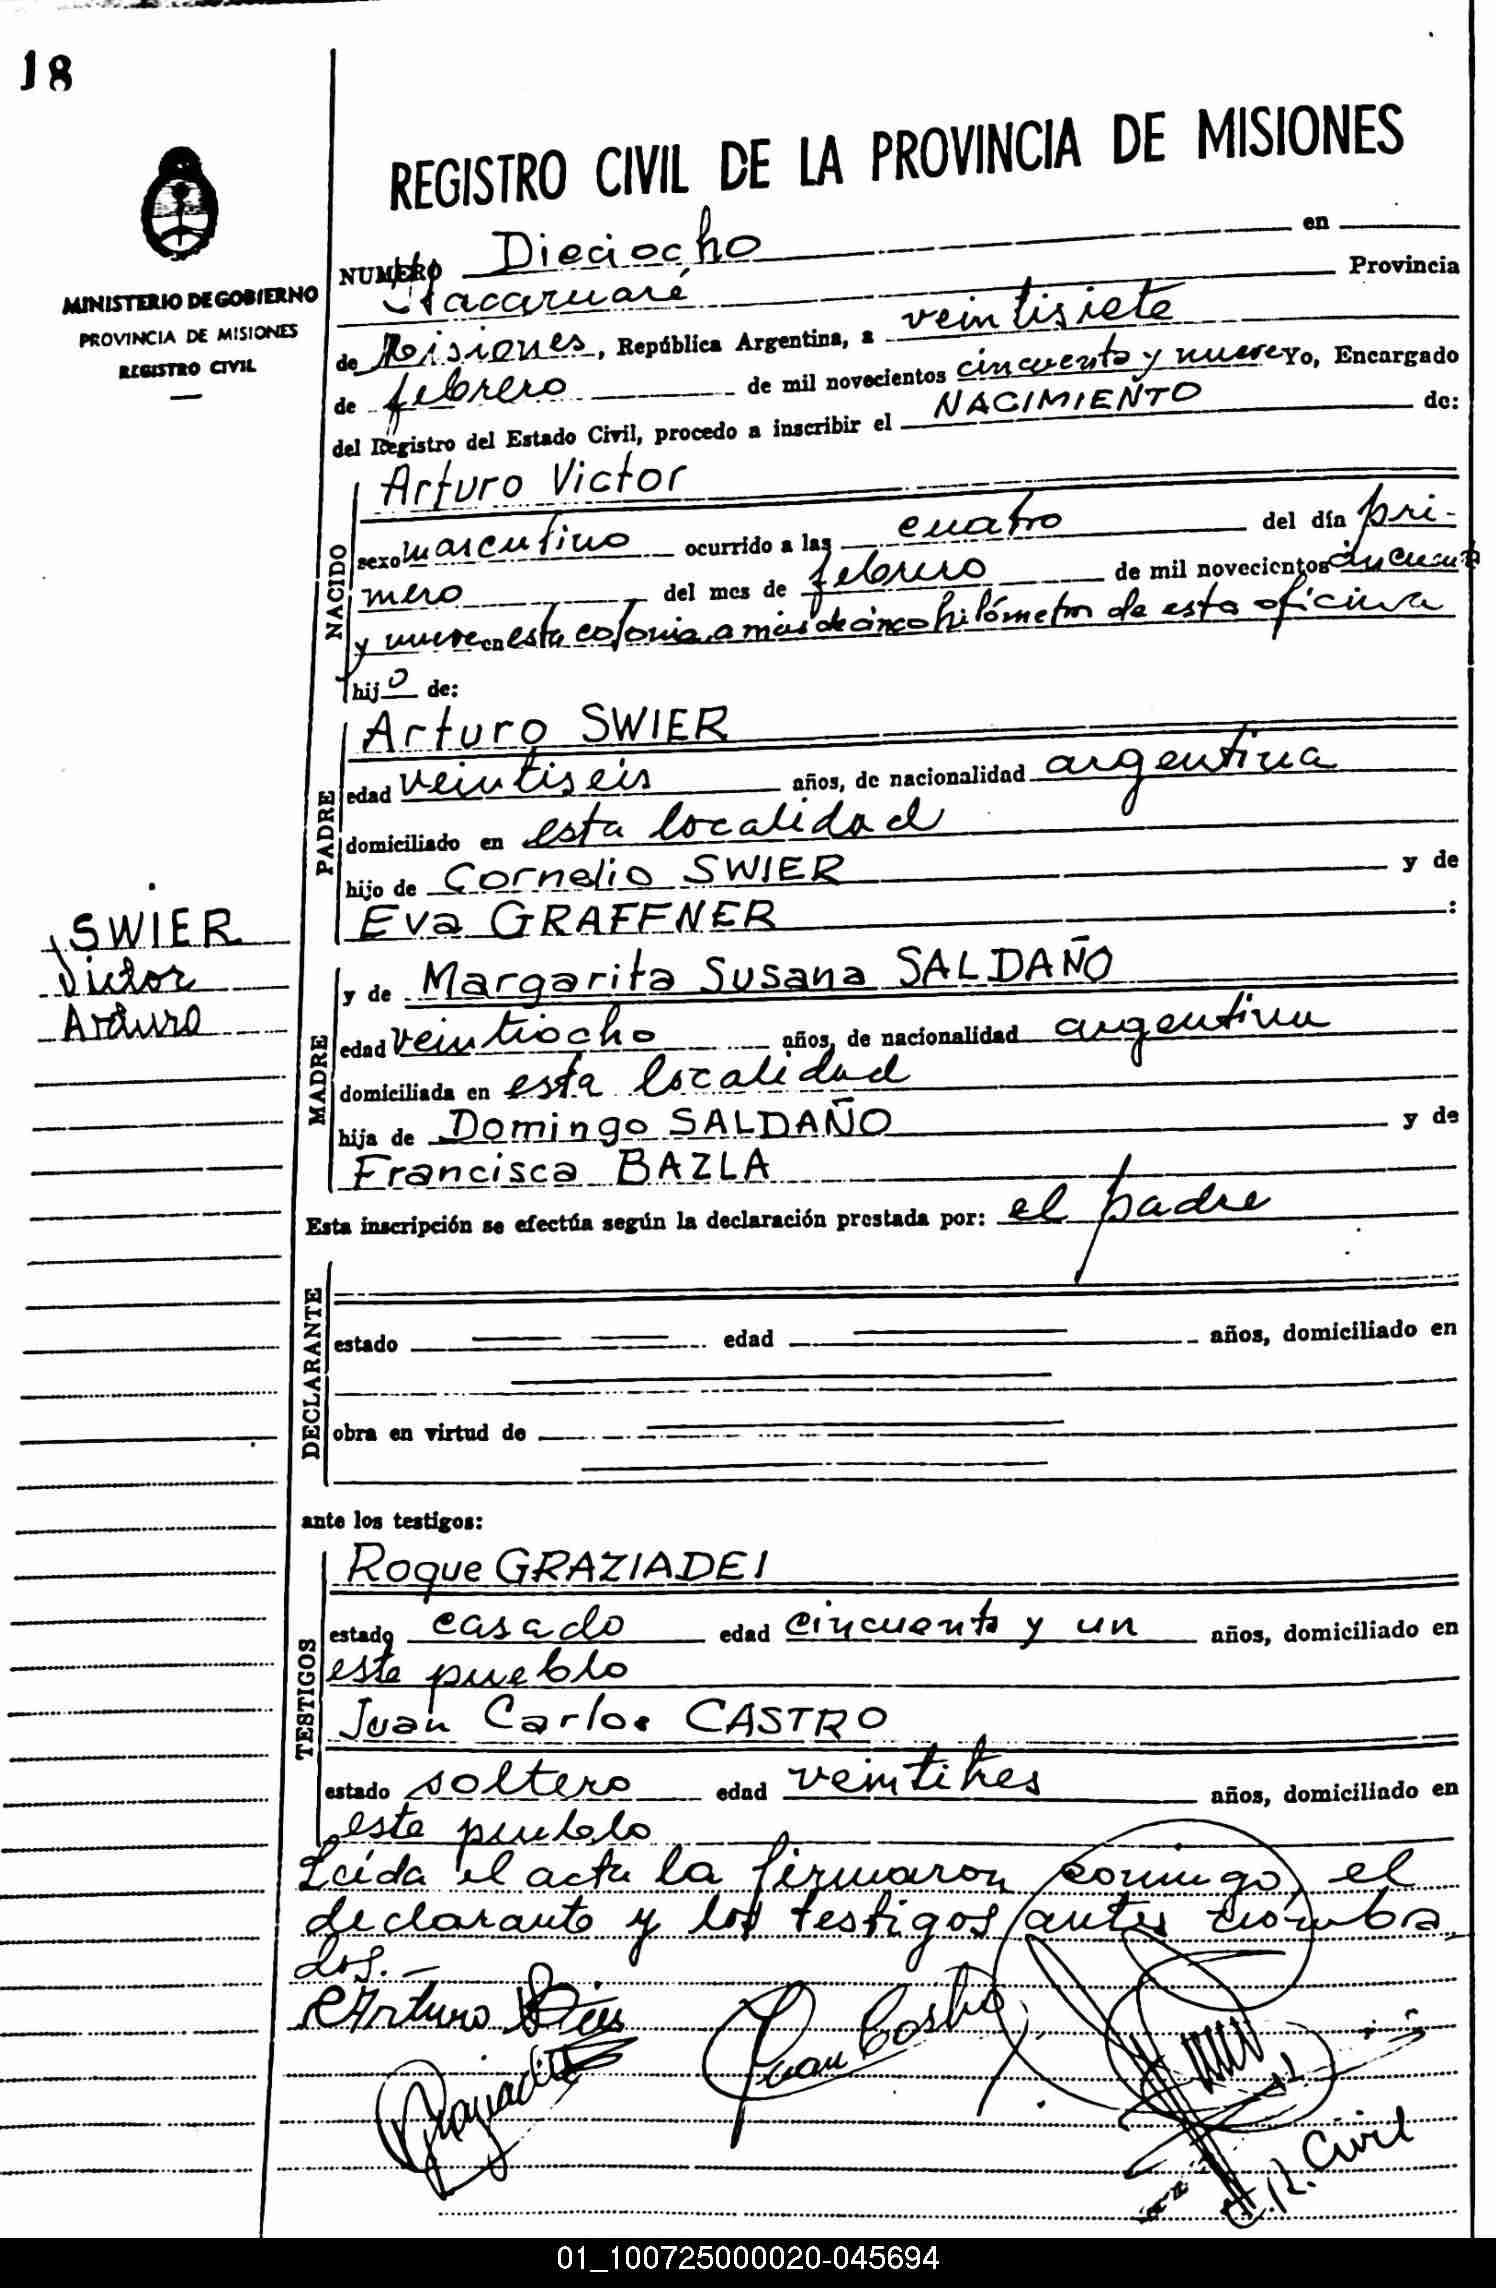 18
REGISTRO CIVIL DE LA PROVINCIA DE MISIONES
MINISTERIO DE GOBIERNO
PROVINCIA DE MISIONES
REGISTRO CIVIL
NUMERO Dieciocho en
Itacaruaré Provincia
de Misiones, República Argentina, a veintisiete
de febrero de mil novecientos cincuenta y nueve Yo, Encargado
del Registro del Estado Civil, procedo a inscribir el NACIMIENTO de:
NACIDO
Arturo Victor
sexo masculino ocurrido a las cuatro del día pri-
mero del mes de febrero de mil novecientos cincuenta
y nueve en esta colonia, a más de cinco kilómetros de esta oficina
hijo de:
PADRE
Arturo SWIER
edad veintiseis años, de nacionalidad argentina
domiciliado en esta localidad
hijo de Cornelio SWIER y de
Eva GRAFFNER :
SWIER
Victor
Arturo
MADRE
y de Margarita Susana SALDAÑO
edad veintiocho años, de nacionalidad argentina
domiciliada en esta localidad
hija de Domingo SALDAÑO y de
Francisca BAZLA
Esta inscripción se efectúa según la declaración prestada por: el padre
DECLARANTE
estado edad años, domiciliado en
obra en virtud de
ante los testigos:
TESTIGOS
Roque GRAZIADEI
estado casado edad cincuenta y un años, domiciliado en
este pueblo
Juan Carlos CASTRO
estado soltero edad veintitres años, domiciliado en
este pueblo
Leída el acta la firmaron conmigo, el
declarante y los testigos antes nomba
dos.-
Arturo Swier
Juan Castro
Graziadei
E.R. Civil
01_100725000020-045694